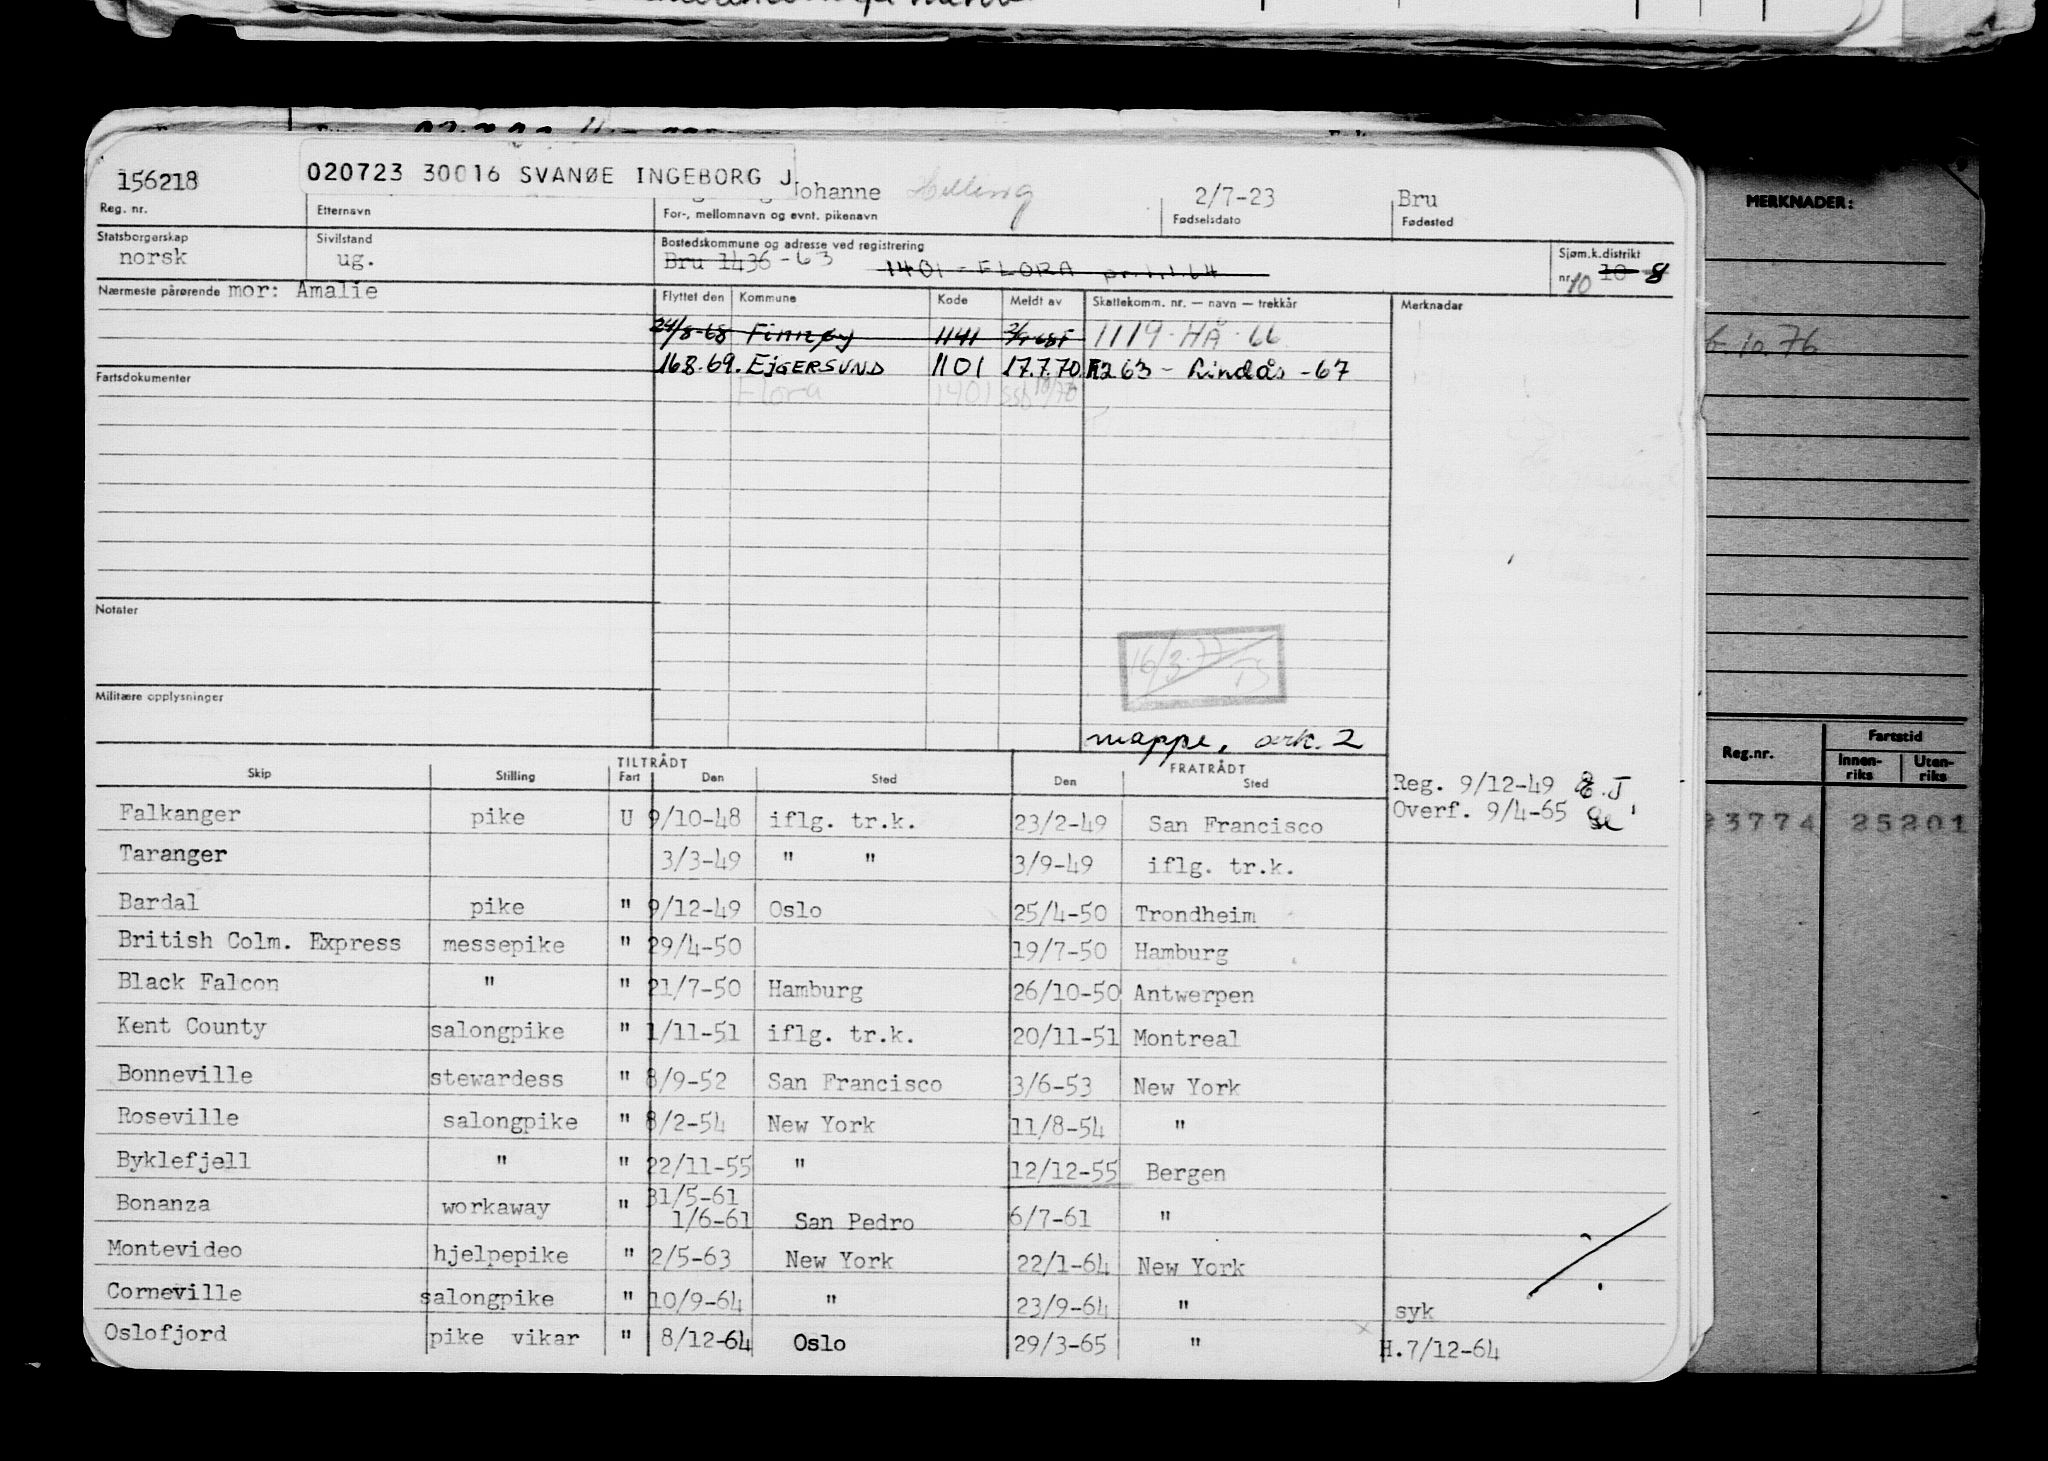 156218 020723 30016 SVANØE INGEBORG J. Johanne Helling 2/7-23 Bru
Reg. nr. Etternavn For-, mellomnavn og evnt. pikenavn Fødselsdato Fødested
Statsborgerskap Sivilstand Bostedskommune og adresse ved registrering Sjøm.k.distrikt
norsk ug. Bru 1436 -63 1401 - FLORA pr. 1.1.64 nr. 10 10 8
Nærmeste pårørende mor: Amalie Flyttet den Kommune Kode Meldt av Skattekomm. nr. — navn — trekkår Merknader
24/8-68 Finnøy 1141 1119 - HÅ - 66
168.69. EJGERSUND 1101 17.7.70. 1263 - Lindås - 67
Fartsdokumenter Flora 1401 SSD 10/70
Notater
16/3-77 TS
Militære opplysninger
mappe, ark. 2
Skip Stilling TILTRÅDT Fart Den Sted FRATRÅDT Den Sted
Reg. 9/12-49 E.J
Overf. 9/4-65
Falkanger pike U 9/10-48 iflg. tr.k. 23/2-49 San Francisco
Taranger 3/3-49 " " 3/9-49 iflg. tr.k.
Bardal pike " 9/12-49 Oslo 25/4-50 Trondheim
British Colm. Express messepike " 29/4-50 19/7-50 Hamburg
Black Falcon " " 21/7-50 Hamburg 26/10-50 Antwerpen
Kent County salongpike " 1/11-51 iflg. tr.k. 20/11-51 Montreal
Bonneville stewardess " 8/9-52 San Francisco 3/6-53 New York
Roseville salongpike " 8/2-54 New York 11/8-54 "
Byklefjell " " 22/11-55 " 12/12-55 Bergen
Bonanza workaway " 31/5-61
1/6-61 San Pedro 6/7-61 "
Montevideo hjelpepike " 2/5-63 New York 22/1-64 New York
Corneville salongpike " 10/9-64 " 23/9-64 " syk
Oslofjord pike vikar " 8/12-64 Oslo 29/3-65 " H.7/12-64
MERKNADER:
6.10.76
Reg.nr. Fartstid
Innenriks Utenriks
23774 25201